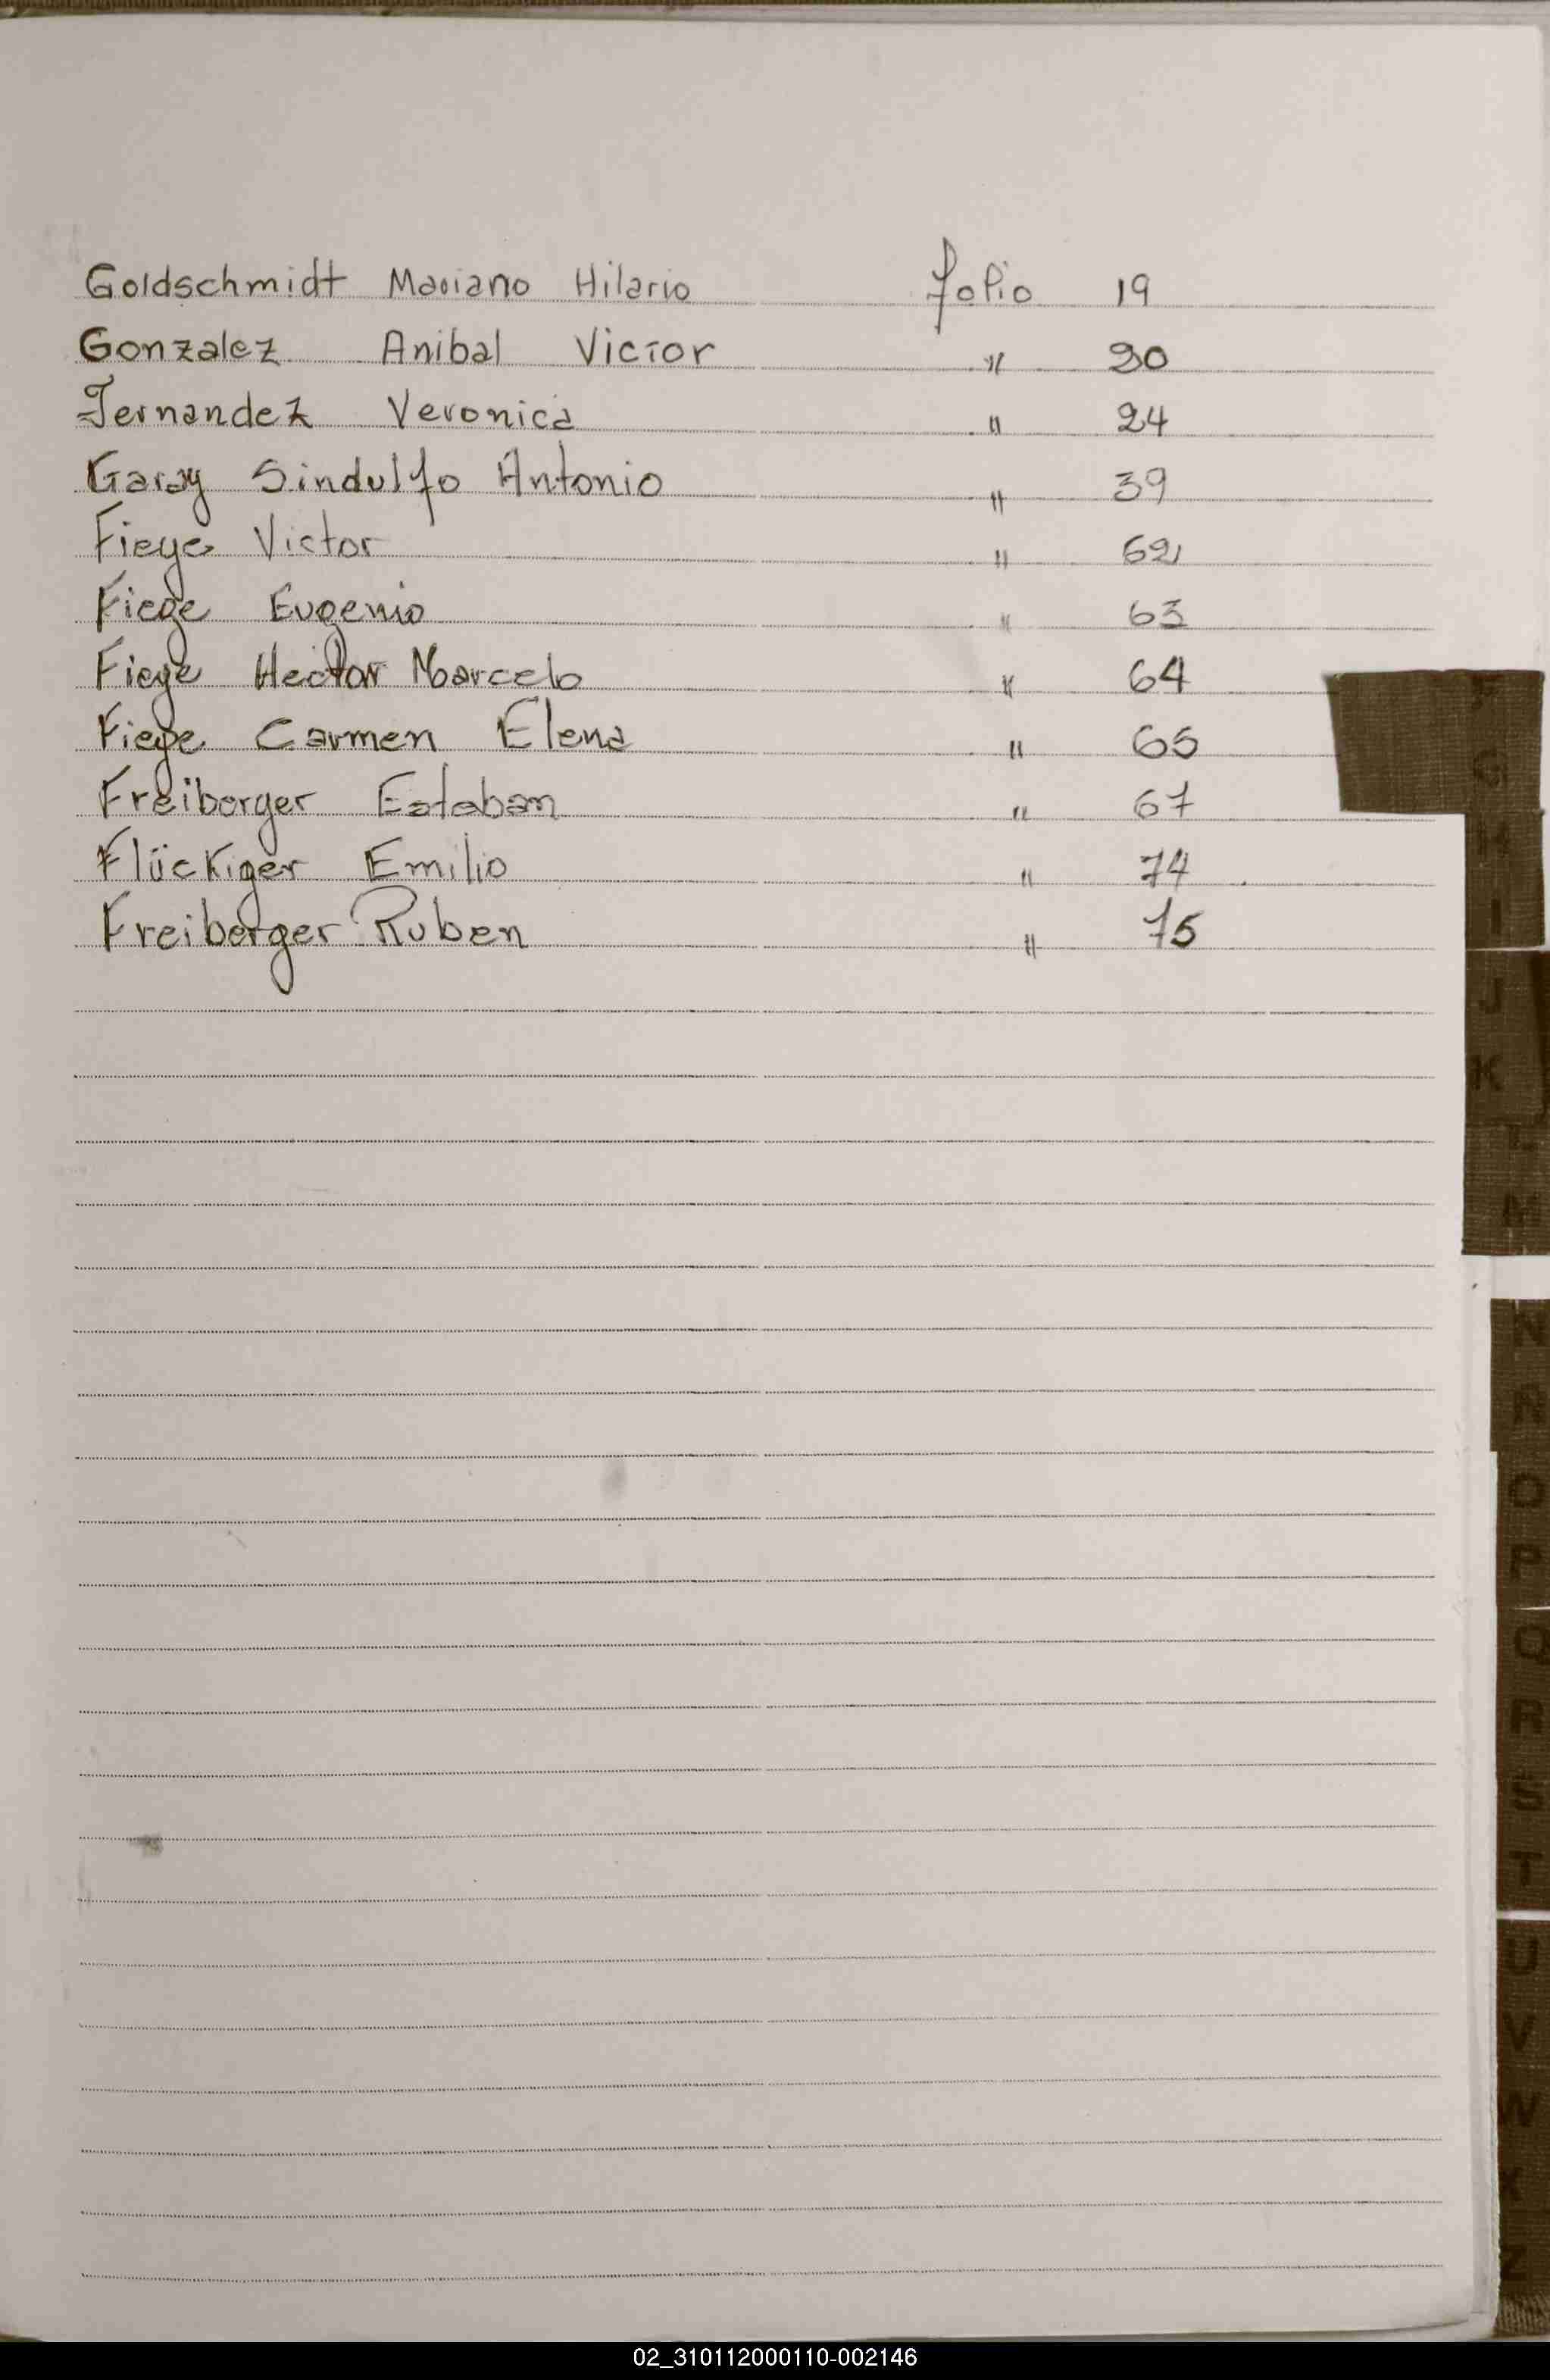 Goldschmidt Mariano Hilario folio 19
Gonzalez Anibal Victor " 20
Fernandez Veronica " 24
Garay Sindulfo Antonio " 39
Fiege Victor " 62
Fiege Eugenio " 63
Fiege Hector Marcelo " 64
Fiege Carmen Elena " 65
Freiberger Esteban " 67
Flückiger Emilio " 74
Freiberger Ruben " 75
G
H
I
J
K
L
M
N
Ñ
O
P
Q
R
S
T
U
V
W
X
Z
02_310112000110-002146